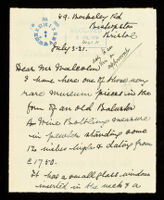 49. Berkeley Rd
Bishopston
Bristol
July 3. 21
Dear Mr Malcolm
I have here one of those very
rare museum pieces in the
form of an old Baluster
Wine Bottling measure
in pewter standing some
12 inches high & dating from
£1750.
It has a small glass window
inserted in the neck & a